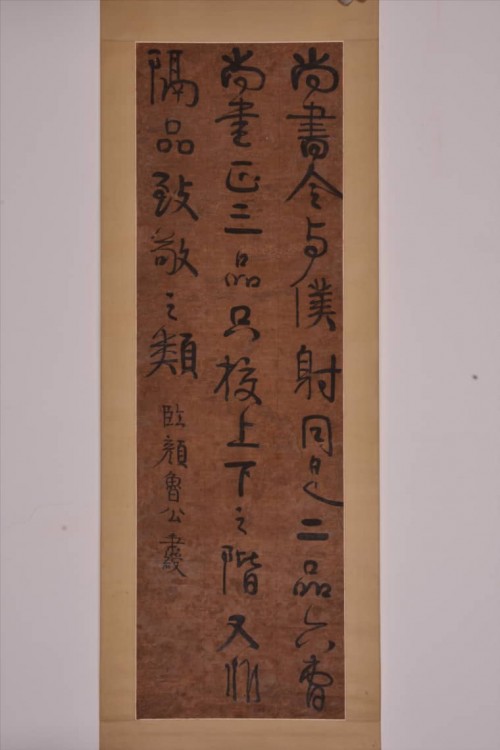 尚書令与僕射同是二品六曹
尚書正三品只校上下之階又非
隔品致敬之類
臨顏魯公